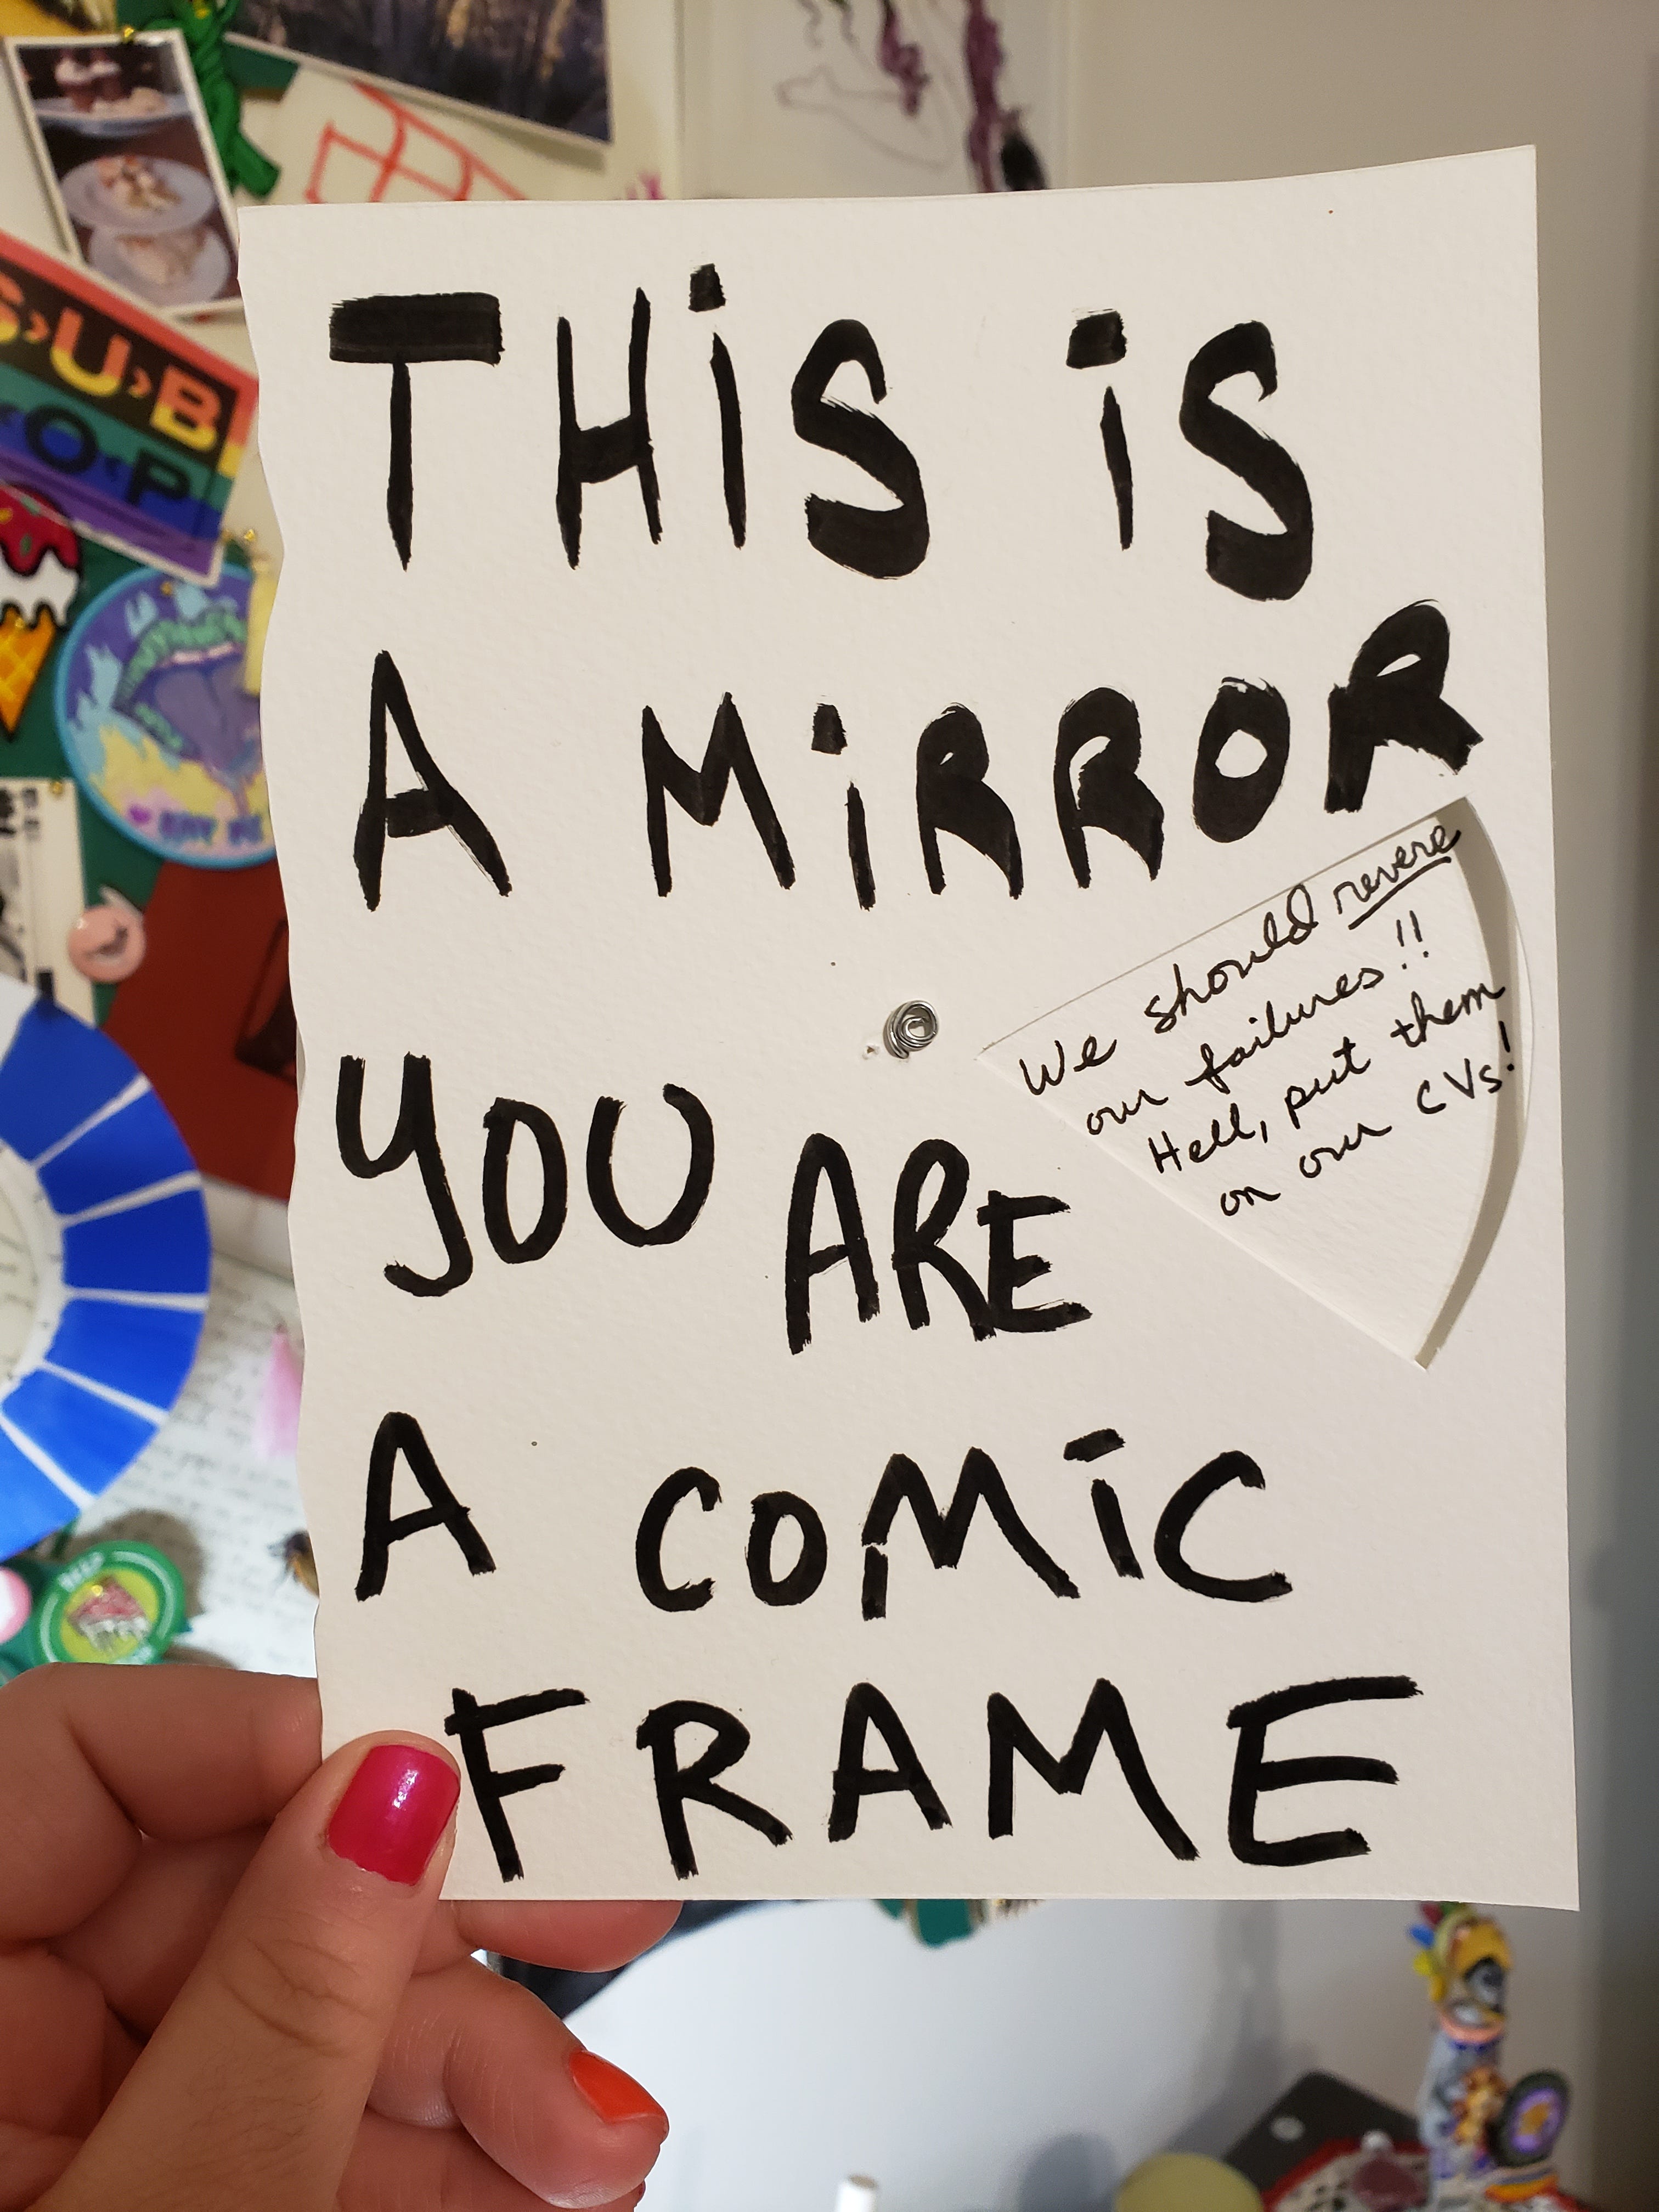 THiS iS
A MiRROR
We should revere
our failures!!
Hell, put them
on our CVs!
YOU ARE
A COMiC
FRAME
S›U›B
P‹O‹P